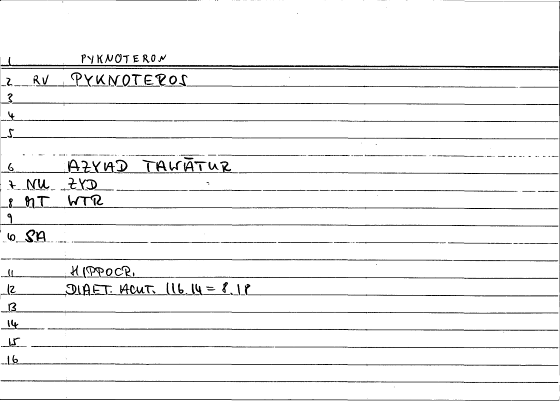 1 PYKNOTERON
2 RV PYKNOTEROS
3
4
5
6 AZYAD TAWĀTUR
7 NU ZYD
8 MT WTR
9
10 SA
11 HIPPOCR.
12 DIAET. ACUT. 116.14 = 8.18
13
14
15
16